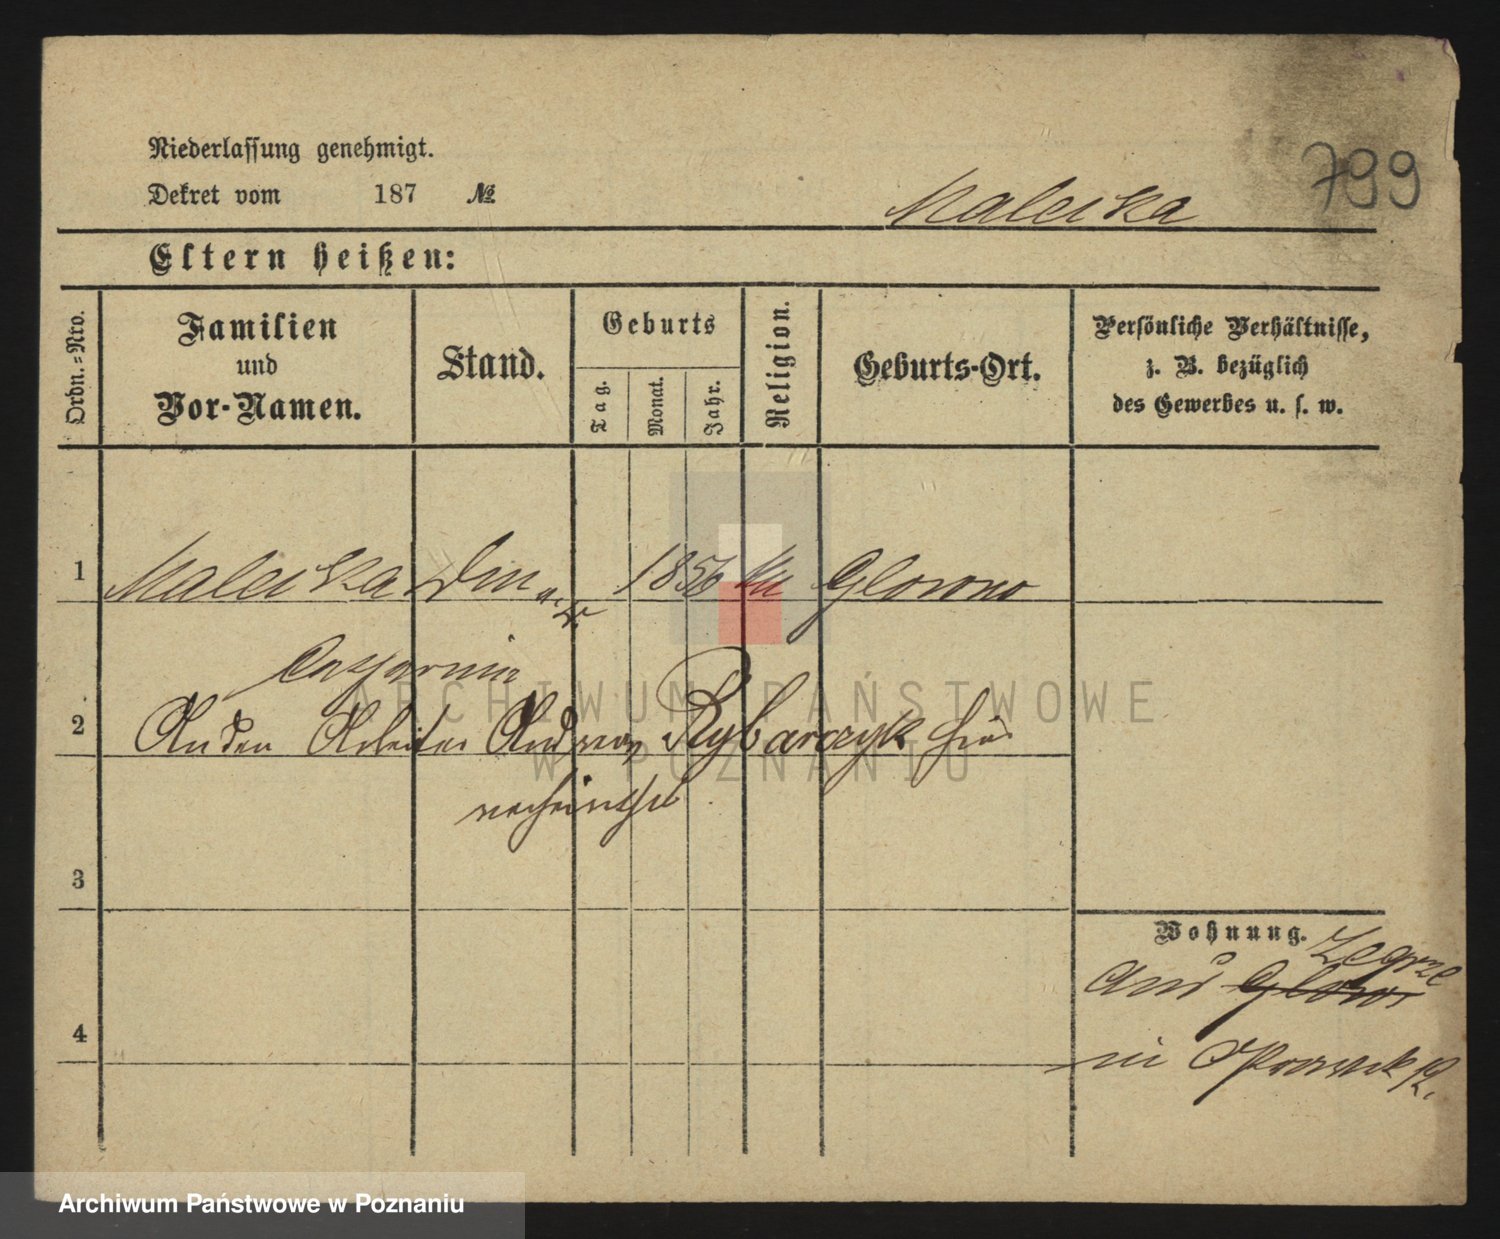 Niederlassung genehmigt.
Dekret vom 187 №
Maleska 799
Eltern heißen:
Ordn.-Nro.
Familien
und
Vor-Namen.
Stand.
Geburts
Tag.
Monat.
Jahr.
Religion.
Geburts-Ort.
Persönliche Verhältnisse,
z. B. bezüglich
des Gewerbes u. s. w.
1 Maleska 1856
2 An den Arbeiter Andreas Rybarczyk hier
3
Wohnung. Zegrze
aus
4
in
ARCHIWUM PAŃSTWOWE
W POZNANIU
Archiwum Państwowe w Poznaniu